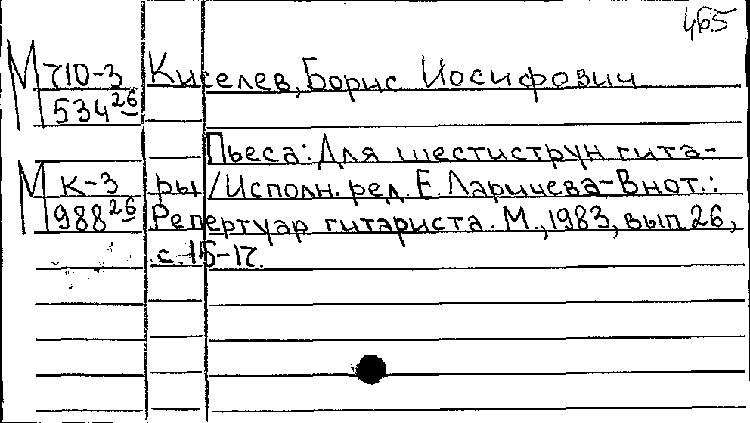 465
М 710-3 Киселев, Борис Иосифович
534 26
Пьеса: Для шестиструн. гита-
М К-3 ры / Исполн. ред. Е. Ларичева - В нот.:
988 26 Репертуар гитариста. М., 1983, вып. 26,
с. 15-17.